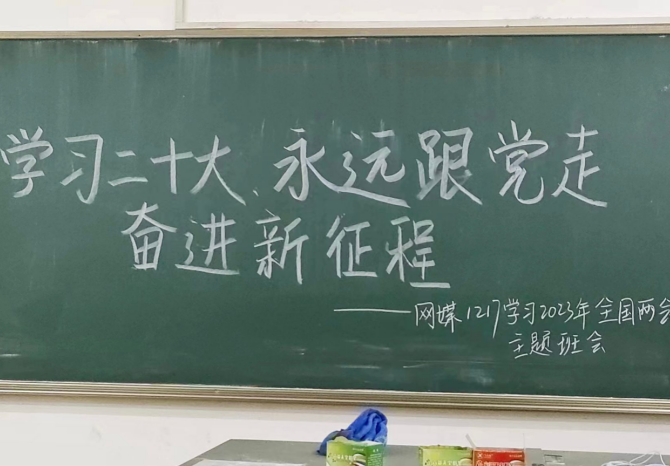 学习二十大、永远跟党走
奋进新征程
——网媒1217学习2023年全国两会
主题班会